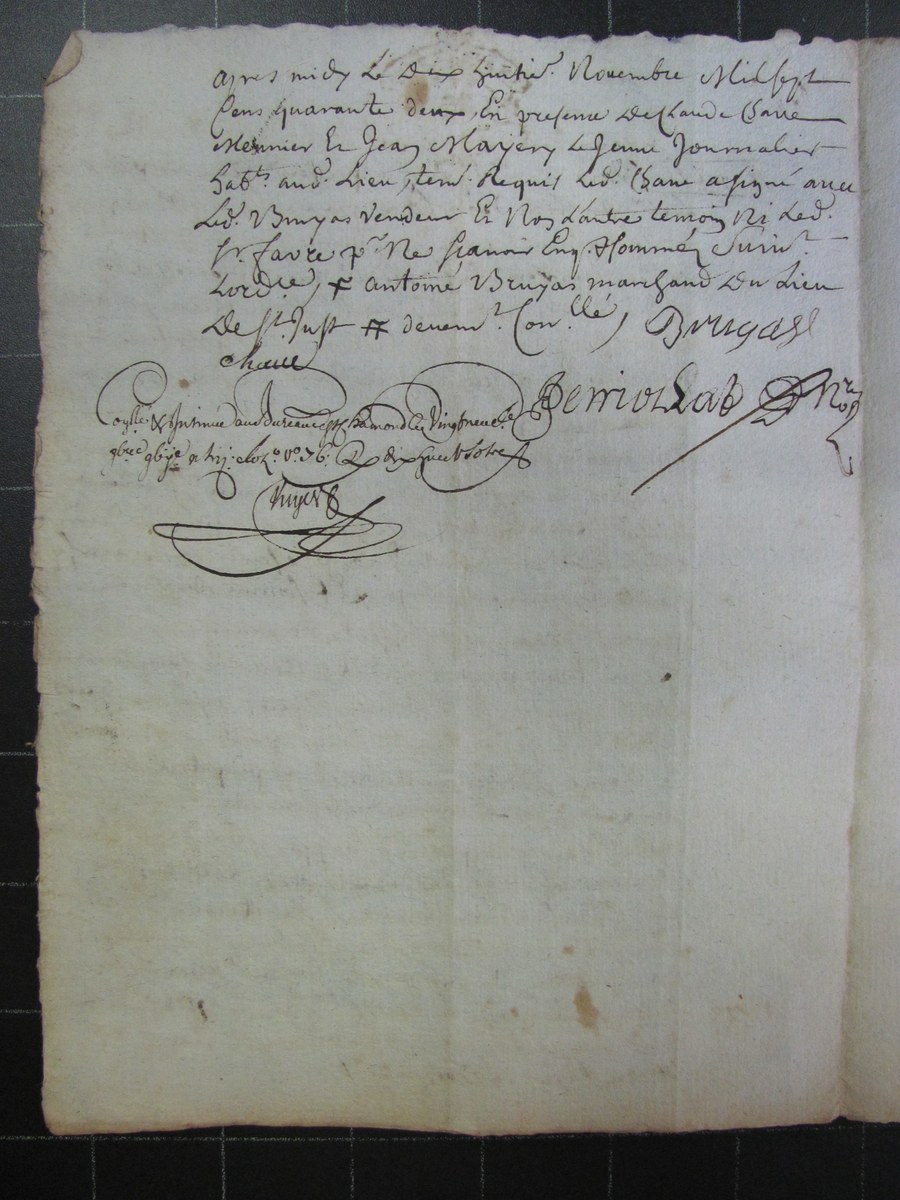 apres midy Le Dix huitie. Novembre Mil sept
Cens quarante deux, En presence De Claude Chave
Meunier Et Jean Mayery Le Jeune Journalier
habts. aud. Lieu, tem. Requis Led. Chave a signé avec
Led. Bruyas vendeur Et Non L'autre temoin Ni Led.
Sr. favre pr. Ne scavoir Enq. Et sommés suivt.
Lord.ce, # antoine Bruyas marchand Du Lieu
De St. Just # devemt. Con.llé, Bruyas
Chave
Perriolat Nre
aud bureau de St Chamond Le Vingt neuf
9bre fo. vo. 76. Rx dix neuf sols